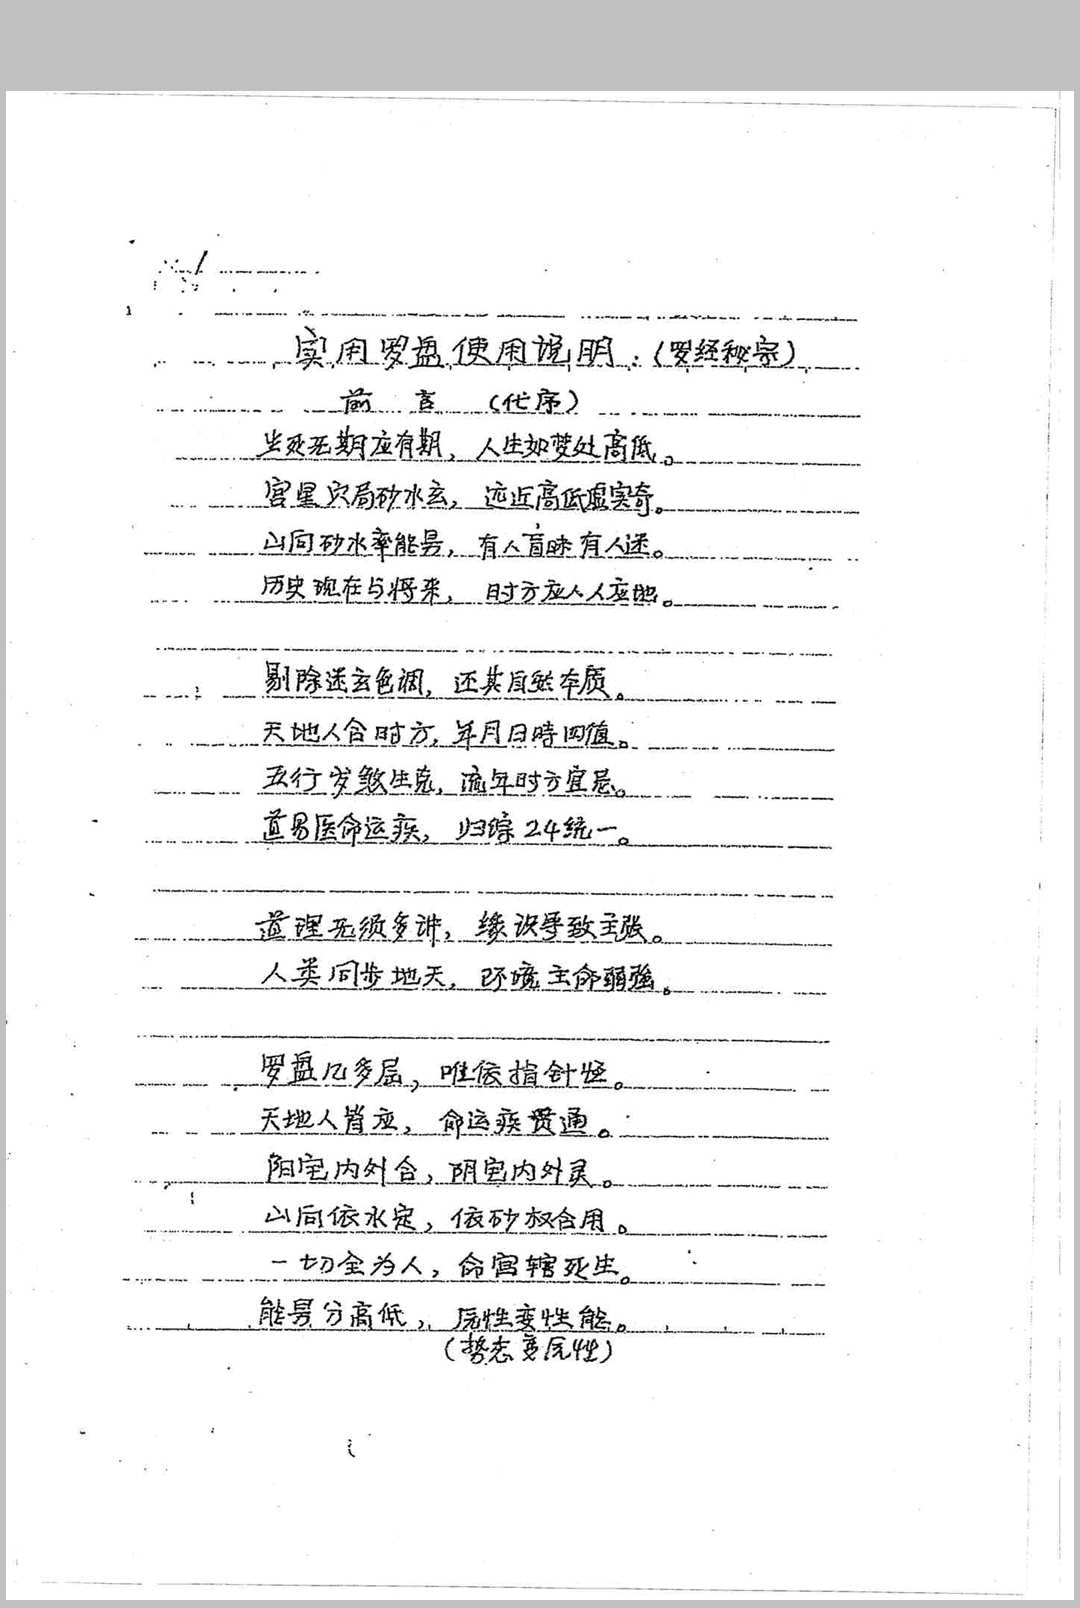 实用罗盘使用说明：（罗经秘宗）
前言（代序）
生死无期应有期，人生如梦处高低。
宫星穴局砂水玄，远近高低虚实奇。
山向砂水率能量，有人盲昧有人迷。
历史现在与将来，时方应人人应地。
剔除迷玄色调，还其自然本质。
天地人合时方，年月日時四值。
五行岁煞生克，流年时方宜忌。
道易医命运疾，归综24统一。
道理无须多讲，缘识导致主张。
人类同步地天，环境主命弱强。
罗盘几多层，唯依指针恒。
天地人皆应，命运疾贯通。
阳宅内外合，阴宅内外灵。
山向依水定，依砂权合用。
一切全为人，命宫辖死生。
能量分高低，属性变性能。
（势态变属性）